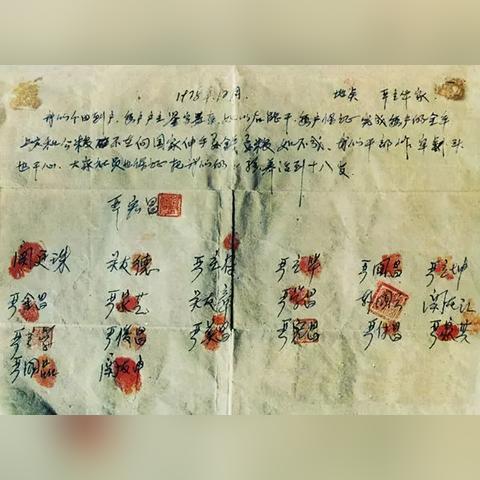 1978年12月 地点 严立华家
我们分田到户,每户户主签字盖章,如以后能干,每户保证完成每户的全年
上交和公粮。不在向国家伸手要钱要粮。如不成,我们干部作牢刹头
也干心,大家社员也保证把我们的小孩养活到十八岁。
严宏昌
关廷珠 关友德 严立符 严立华 严国昌 严立坤
严金昌 严家芝 关友章 严学昌 韩国云 关友江
严立学 严俊昌 严美昌 严宏昌 严付昌 严家其
严国品 关友申